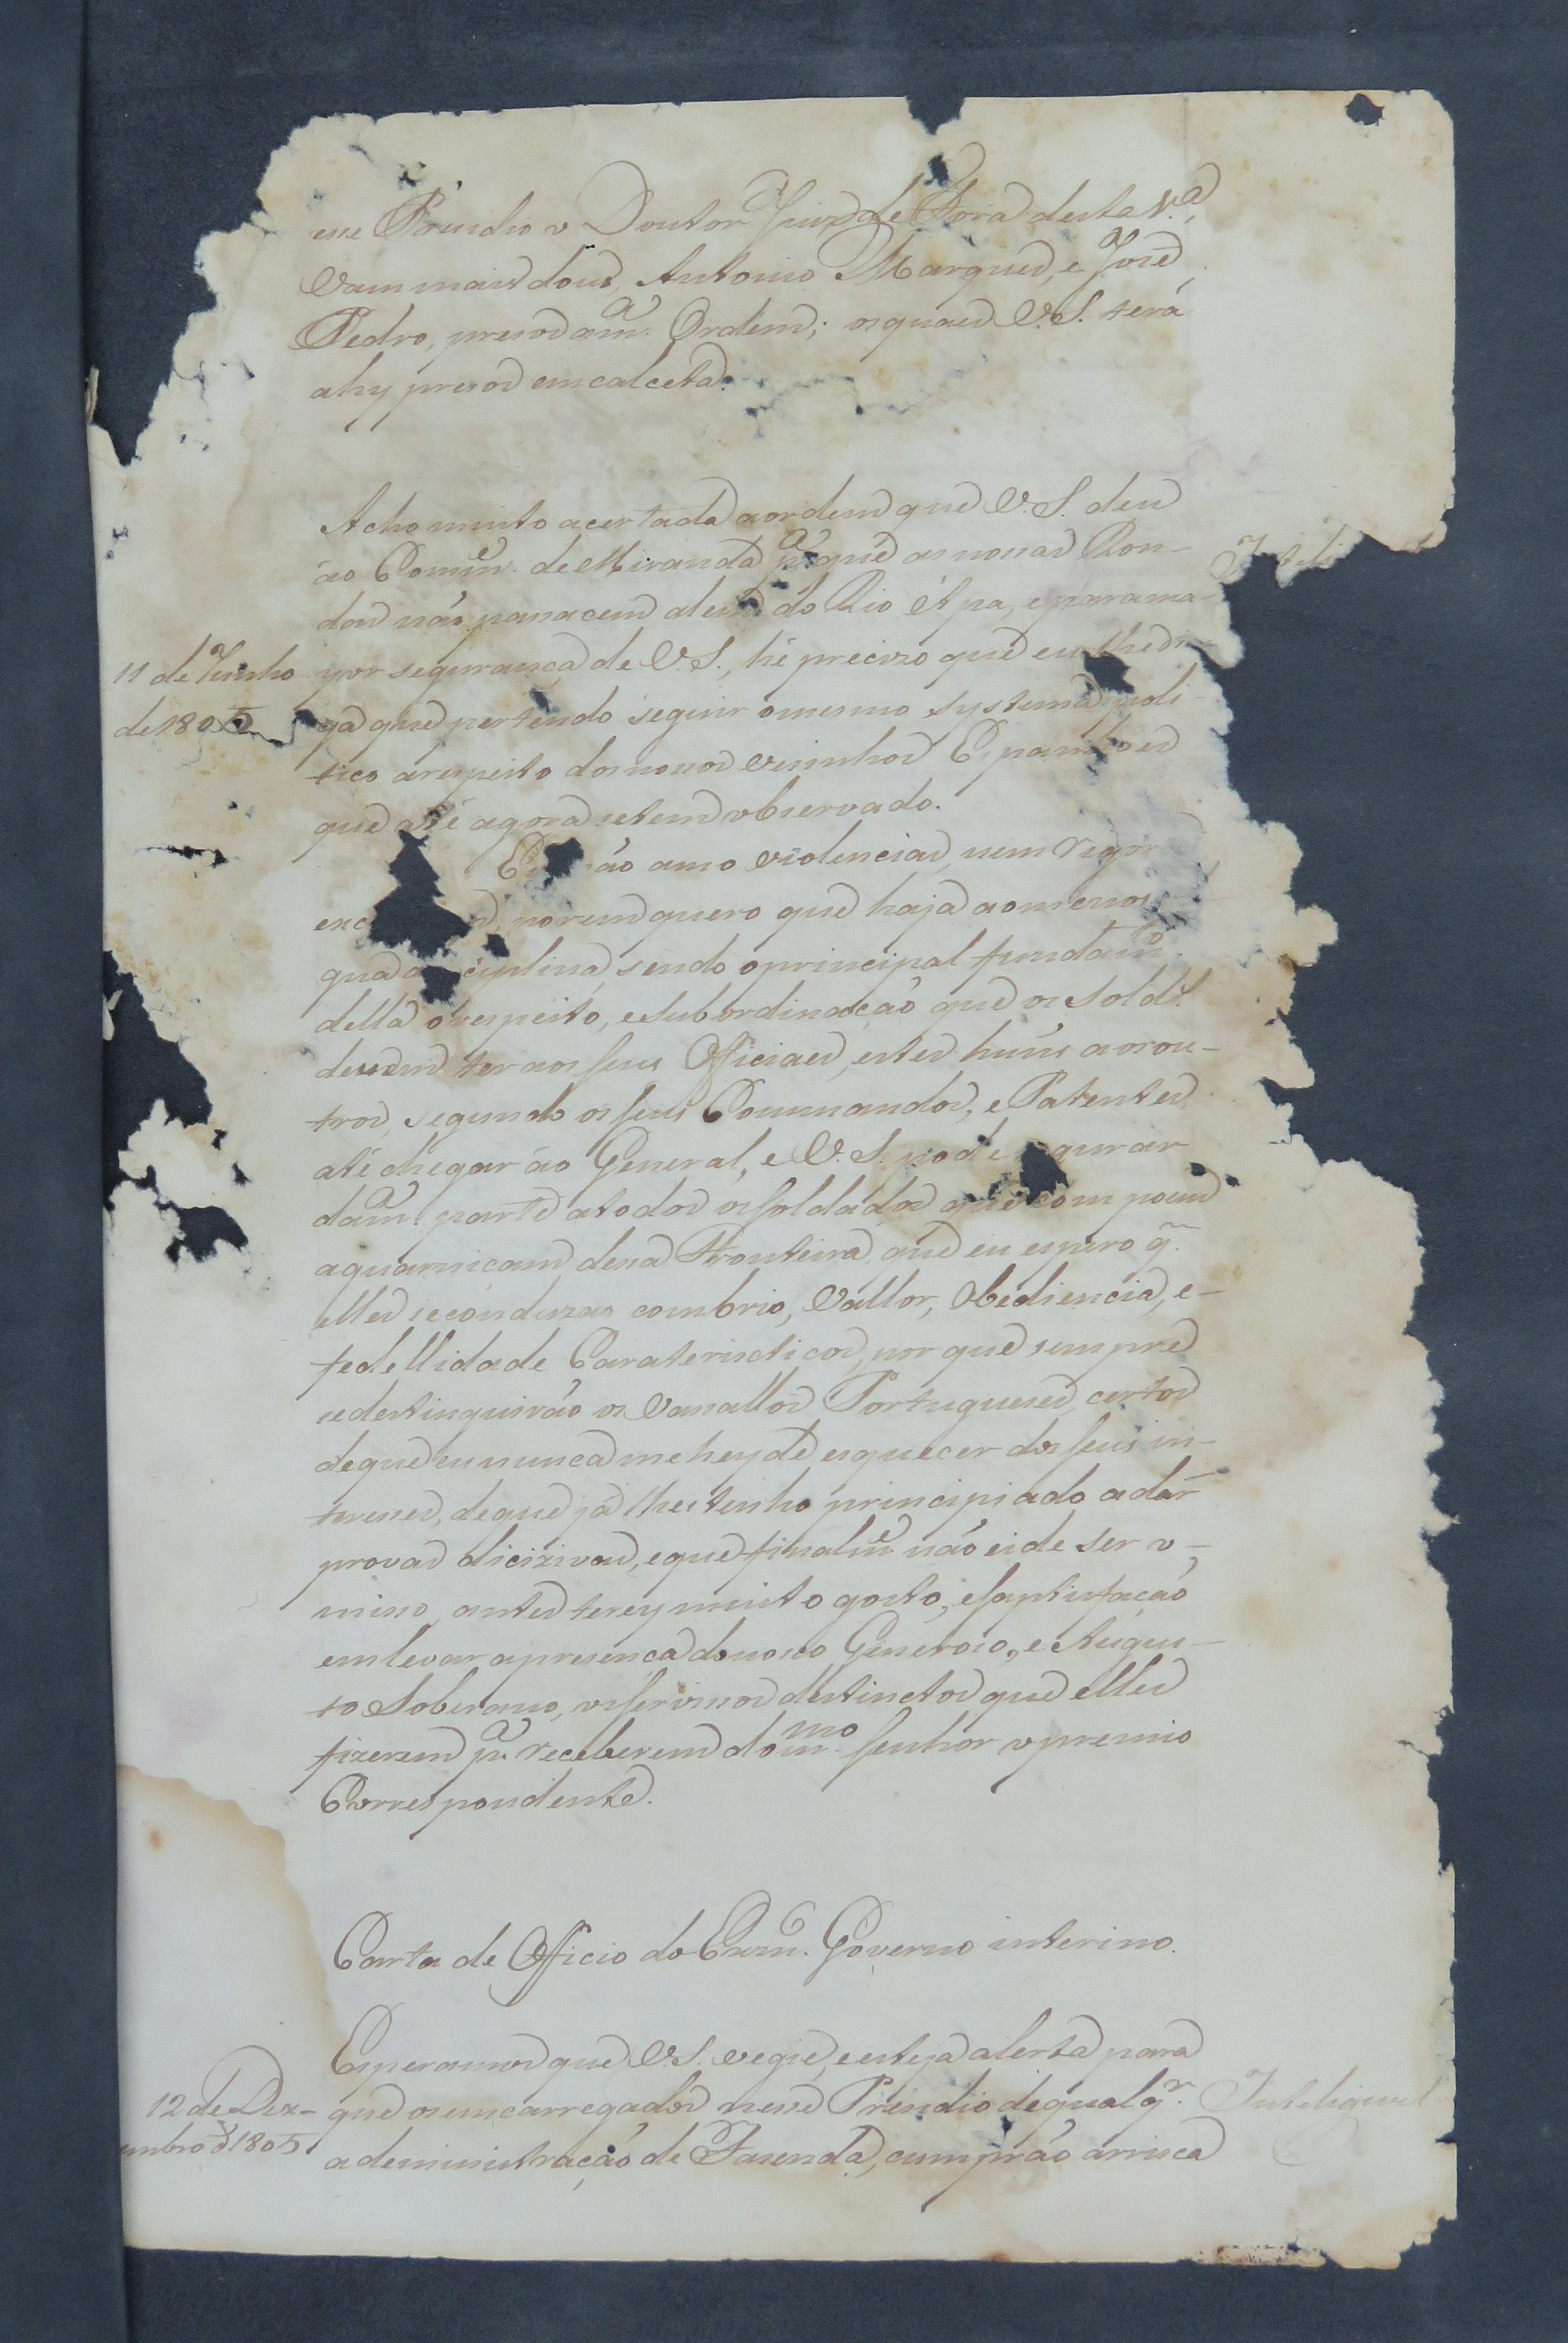 esse Prezidio o Doutor Juiz de Fora desta V.ª,
Vam mais dous, Antonio Marques, e José
Pedro, prezos a m.ª Ordem; os quaes V.S. terá
ahy prezos em calceta.
Acho muito acertada a ordem que V.S. deu
ao Comm.e de Miranda p.ª que as nossas Ron-
das não passacem alem do Rio Apa, e para ma-
11 de Junho
de 1805
yor segurança de V.S., hé precizo que eu lhe di-
ga que pertendo seguir o mesmo systema poli-
tico a respeito dos nossos vesinhos Espanhoes
que até agora se tem observado.
não amo violencias, nem rigor
porem quero que haja ao menos
sendo o principal fundam.to
della o respeito, e subordinação que os Sold.s
devem ter aos seus Officiaes, estes huns aos ou-
tros, segundo os seus Commandos, e Patentes,
até chegar ao General, e V.S. pode segurar
da m.ª parte a todos os soldados que compoem
a guarniçam dessa Fronteira, que eu espero q.
elles se conduzão com brio, Vallor, Obediencia, e-
fedellidade Caratericticos, por que sempre
se destinguirão os Vassallos Portuguezes, certos
de que eu nunca me hey de esquecer dos seus in-
teresses, de que já lhes tenho principiado a dár
provas dicizivas, e que finalm.e não eide ser o-
misso, antes terey muito gosto, e saptisfação
em levar a presença do nosso Generoso, e Augus-
to Soberano, os serviços destinctos que elles
fizerem p.ª receberem do m.mo Senhor o premio
Correspondente.
Carta de Officio do Exm.º Governo interino.
Esperamos que V.S. vegie, e esteja alerta para
12 de Dez-
embro de 1805
que os emcarregados nesse Prezidio de qualq.r
Inteligivel
a deministração de Fazenda, cumprão arrisca